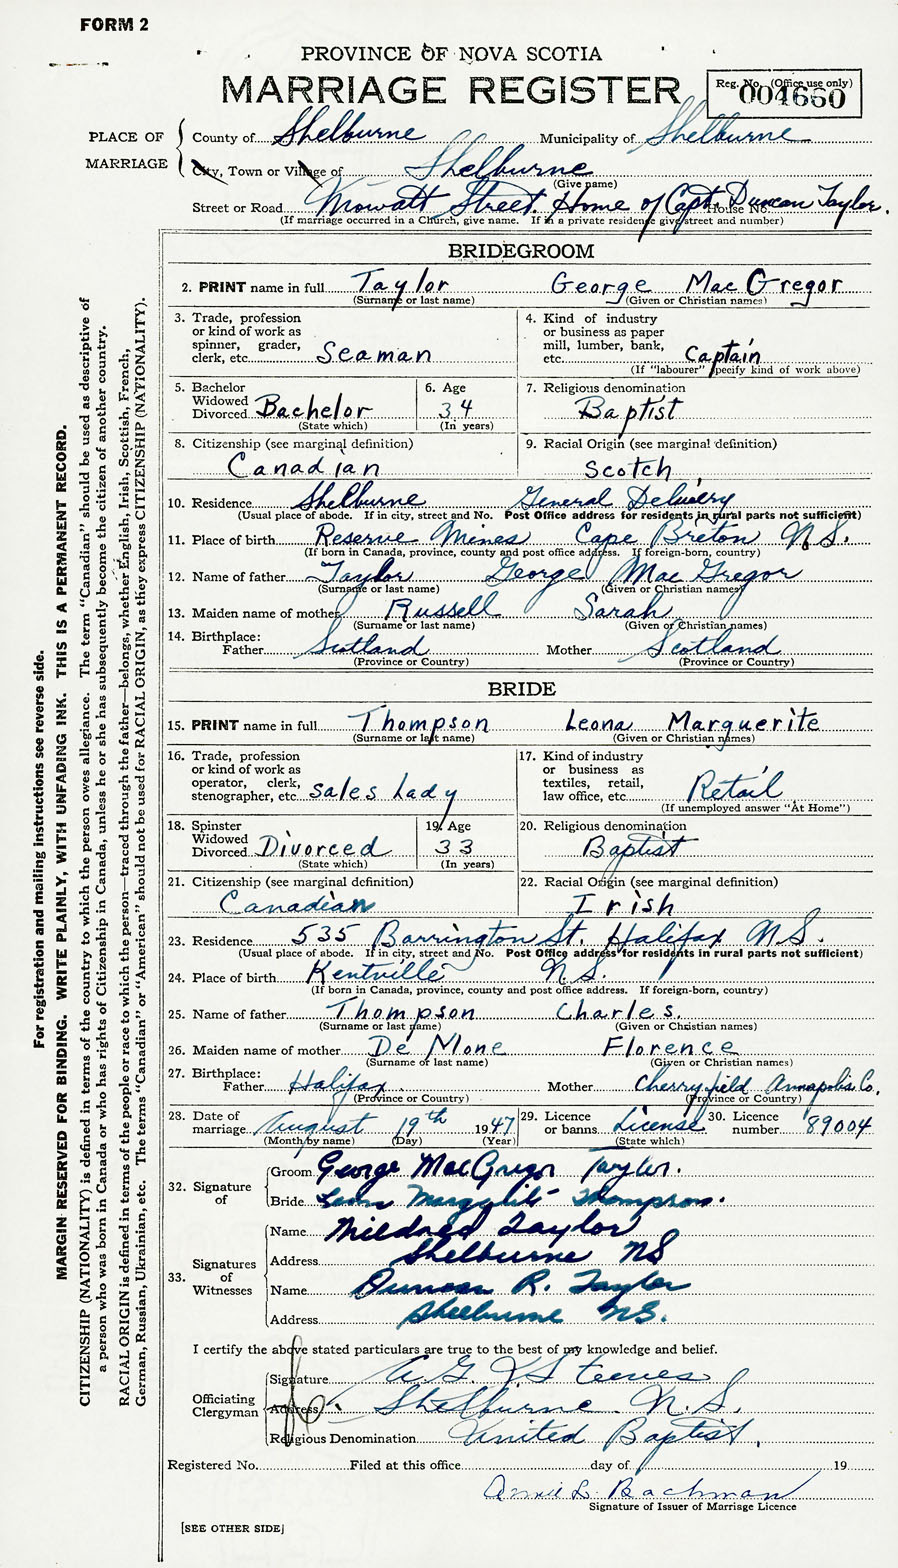 FORM 2
PROVINCE OF NOVA SCOTIA
MARRIAGE REGISTER
Reg. No. (Office use only)
004660
PLACE OF MARRIAGE
County of Shelburne Municipality of Shelburne
City, Town or Village of Shelburne
(Give name)
Street or Road Mowatt Street. Home of Capt. Duncan Taylor. House No.
(If marriage occurred in a Church, give name. If in a private residence give street and number)
BRIDEGROOM
2. PRINT name in full Taylor George MacGregor
(Surname or last name) (Given or Christian names)
3. Trade, profession or kind of work as spinner, grader, clerk, etc. Seaman
4. Kind of industry or business as paper mill, lumber, bank, etc. Captain
(If "labourer" specify kind of work above)
5. Bachelor Widowed Divorced Bachelor
(State which)
6. Age 34
(In years)
7. Religious denomination Baptist
8. Citizenship (see marginal definition) Canadian
9. Racial Origin (see marginal definition) Scotch
10. Residence Shelburne General Delivery
(Usual place of abode. If in city, street and No. Post Office address for residents in rural parts not sufficient)
11. Place of birth Reserve Mines Cape Breton N.S.
(If born in Canada, province, county and post office address. If foreign-born, country)
12. Name of father Taylor George MacGregor
(Surname or last name) (Given or Christian names)
13. Maiden name of mother Russell Sarah
(Surname or last name) (Given or Christian names)
14. Birthplace:
Father Scotland Mother Scotland
(Province or Country) (Province or Country)
BRIDE
15. PRINT name in full Thompson Leona Marguerite
(Surname or last name) (Given or Christian names)
16. Trade, profession or kind of work as operator, clerk, stenographer, etc. Sales Lady
17. Kind of industry or business as textiles, retail, law office, etc. Retail
(If unemployed answer "At Home")
18. Spinster Widowed Divorced Divorced
(State which)
19. Age 33
(In years)
20. Religious denomination Baptist
21. Citizenship (see marginal definition) Canadian
22. Racial Origin (see marginal definition) Irish
23. Residence 535 Barrington St. Halifax N.S.
(Usual place of abode. If in city, street and No. Post Office address for residents in rural parts not sufficient)
24. Place of birth Kentville N.S.
(If born in Canada, province, county and post office address. If foreign-born, country)
25. Name of father Thompson Charles.
(Surname or last name) (Given or Christian names)
26. Maiden name of mother De Mone Florence
(Surname or last name) (Given or Christian names)
27. Birthplace:
Father Halifax. Mother Cherryfield Annapolis Co.
(Province or Country) (Province or Country)
28. Date of marriage August 19th 1947
(Month by name) (Day) (Year)
29. Licence or banns License
(State which)
30. Licence number 89004
32. Signature of
Groom George MacGregor Taylor.
Bride Leona Marguerite Thompson.
33. Signatures of Witnesses
Name Mildred Taylor
Address Shelburne NS
Name Duncan R. Taylor
Address Shelburne N.S.
I certify the above stated particulars are true to the best of my knowledge and belief.
Officiating Clergyman
Signature A. G. Steeves
Address Shelburne N.S.
Religious Denomination United Baptist.
Registered No. Filed at this office day of 19
Bachman
Signature of Issuer of Marriage Licence
[SEE OTHER SIDE]
For registration and mailing instructions see reverse side.
MARGIN RESERVED FOR BINDING. WRITE PLAINLY, WITH UNFADING INK. THIS IS A PERMANENT RECORD.
CITIZENSHIP (NATIONALITY) is defined in terms of the country to which the person owes allegiance. The term "Canadian" should be used as descriptive of
a person who was born in Canada or who has rights of Citizenship in Canada, unless he or she has subsequently become the citizen of another country.
RACIAL ORIGIN is defined in terms of the people or race to which the person—traced through the father—belongs, whether English, Irish, Scottish, French,
German, Russian, Ukrainian, etc. The terms "Canadian" or "American" should not be used for RACIAL ORIGIN, as they express CITIZENSHIP (NATIONALITY).